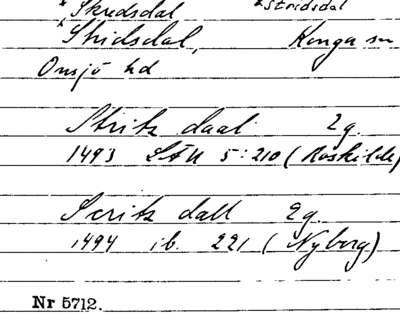 *Skridsdal *Stridsdal
Stridsdal, Konga sn
Onsjö hd
Stritz daal 2g.
1493 LÅU 5:210 (Roskilde)
Scritz dall 2g.
1494 ib. 221 (Nyborg)
Nr 5712.